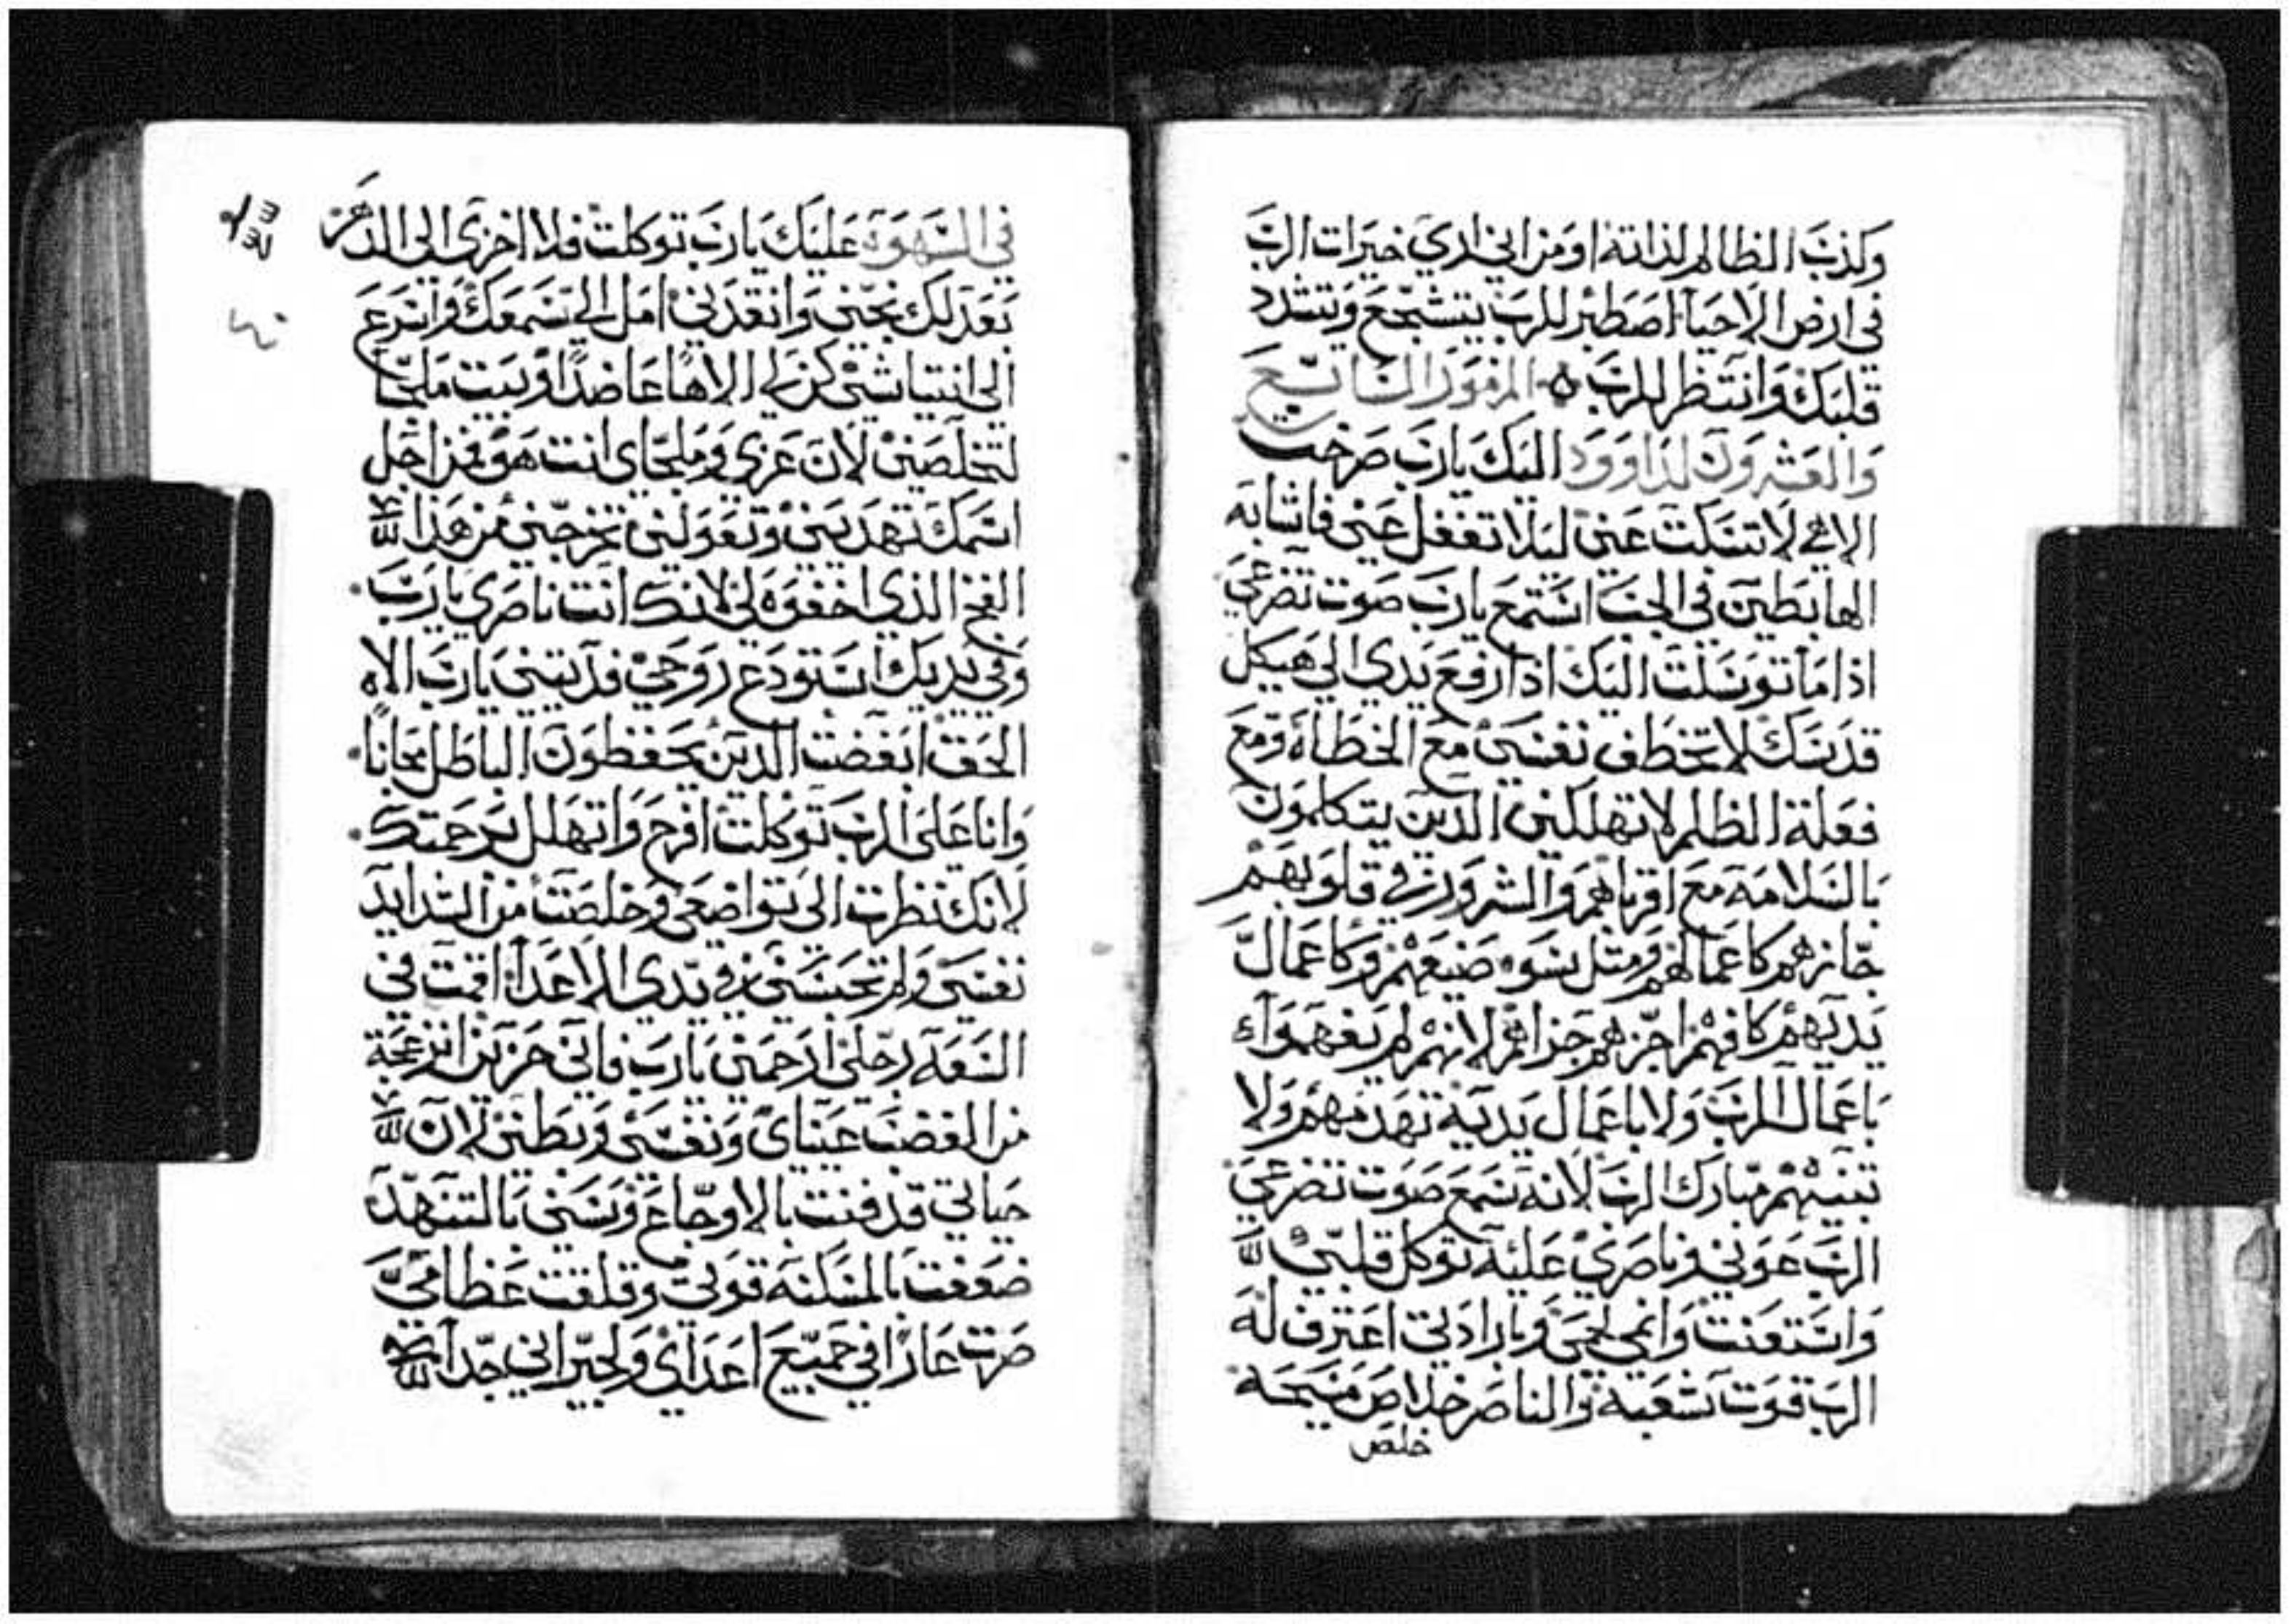 وكذب الظالم لذاته اومن اني اري خيرات الرب
في ارض الاحيآ اصطبر للرب يتشجع ويتشدد
قلبك وانتظر للرب ه المزمور السابع
والعشرون لداوود اليك يارب صرخت
الاهي لا تسكت عني ليلا تغفل عني فاشابه
الهابطين في الجب استمع يارب صوت تضرعي
اذا ما توسلت اليك اذا ارفع يدي الي هيكل
قدسك لا تخطف نفسي مع الخطاه ومع
فعلة الظلم لا تهلكني الذين يتكلمون
بالسلامه مع اقرباهم والشرور في قلوبهم
جازهم كاعمالهم ومثل سوء صنيعهم وكاعمال
يديهم كافهم اجزهم جزاهم لانهم لم يفهموا
باعمال الرب ولا باعمال يديه تهدمهم ولا
تبنيهم مبارك الرب لانه سمع صوت تضرعي
الرب عوني وناصري عليه توكل قلبي
واستعنت وانمي لحمي وبارادتي اعترف له
الرب قوت شعبه والناصر خلاص مسيحه
خلص
في السهوة عليك يارب توكلت فلا اخزي الي الدهر
بعدلك نجني وانقدني امل الي سمعك واسرع
الي انتياشي كن لي الاها عاضدا وبيت ملجا
لتخلصني لان عزي وملجاي انت هو فمن اجل
اسمك تهديني وتعولني تخرجني من هذا
الفخ الذي اخفوه لي لانك انت ناصري يارب
وفي يديك استودع روحي فديتني يارب الاه
الحق ابغضت الذين يحفظون الباطل مجانا
وانا علي الرب توكلت افرح واتهلل برحمتك
لانك نظرت الي تواضعي وخلصت من الشدايد
نفسي ولم تحبسني في يدي الاعدا اقمت في
السعه رجلي ارحمني يارب فاني حزين انزعجة
من الغضب عيناي ونفسي وبطني لان
حياتي قد فنت بالاوجاع وسني بالتنهد
ضعفت بالمسكنه قوتي وقلقت عظامي
صرت عارا في جميع اعداي ولجيراني جدا